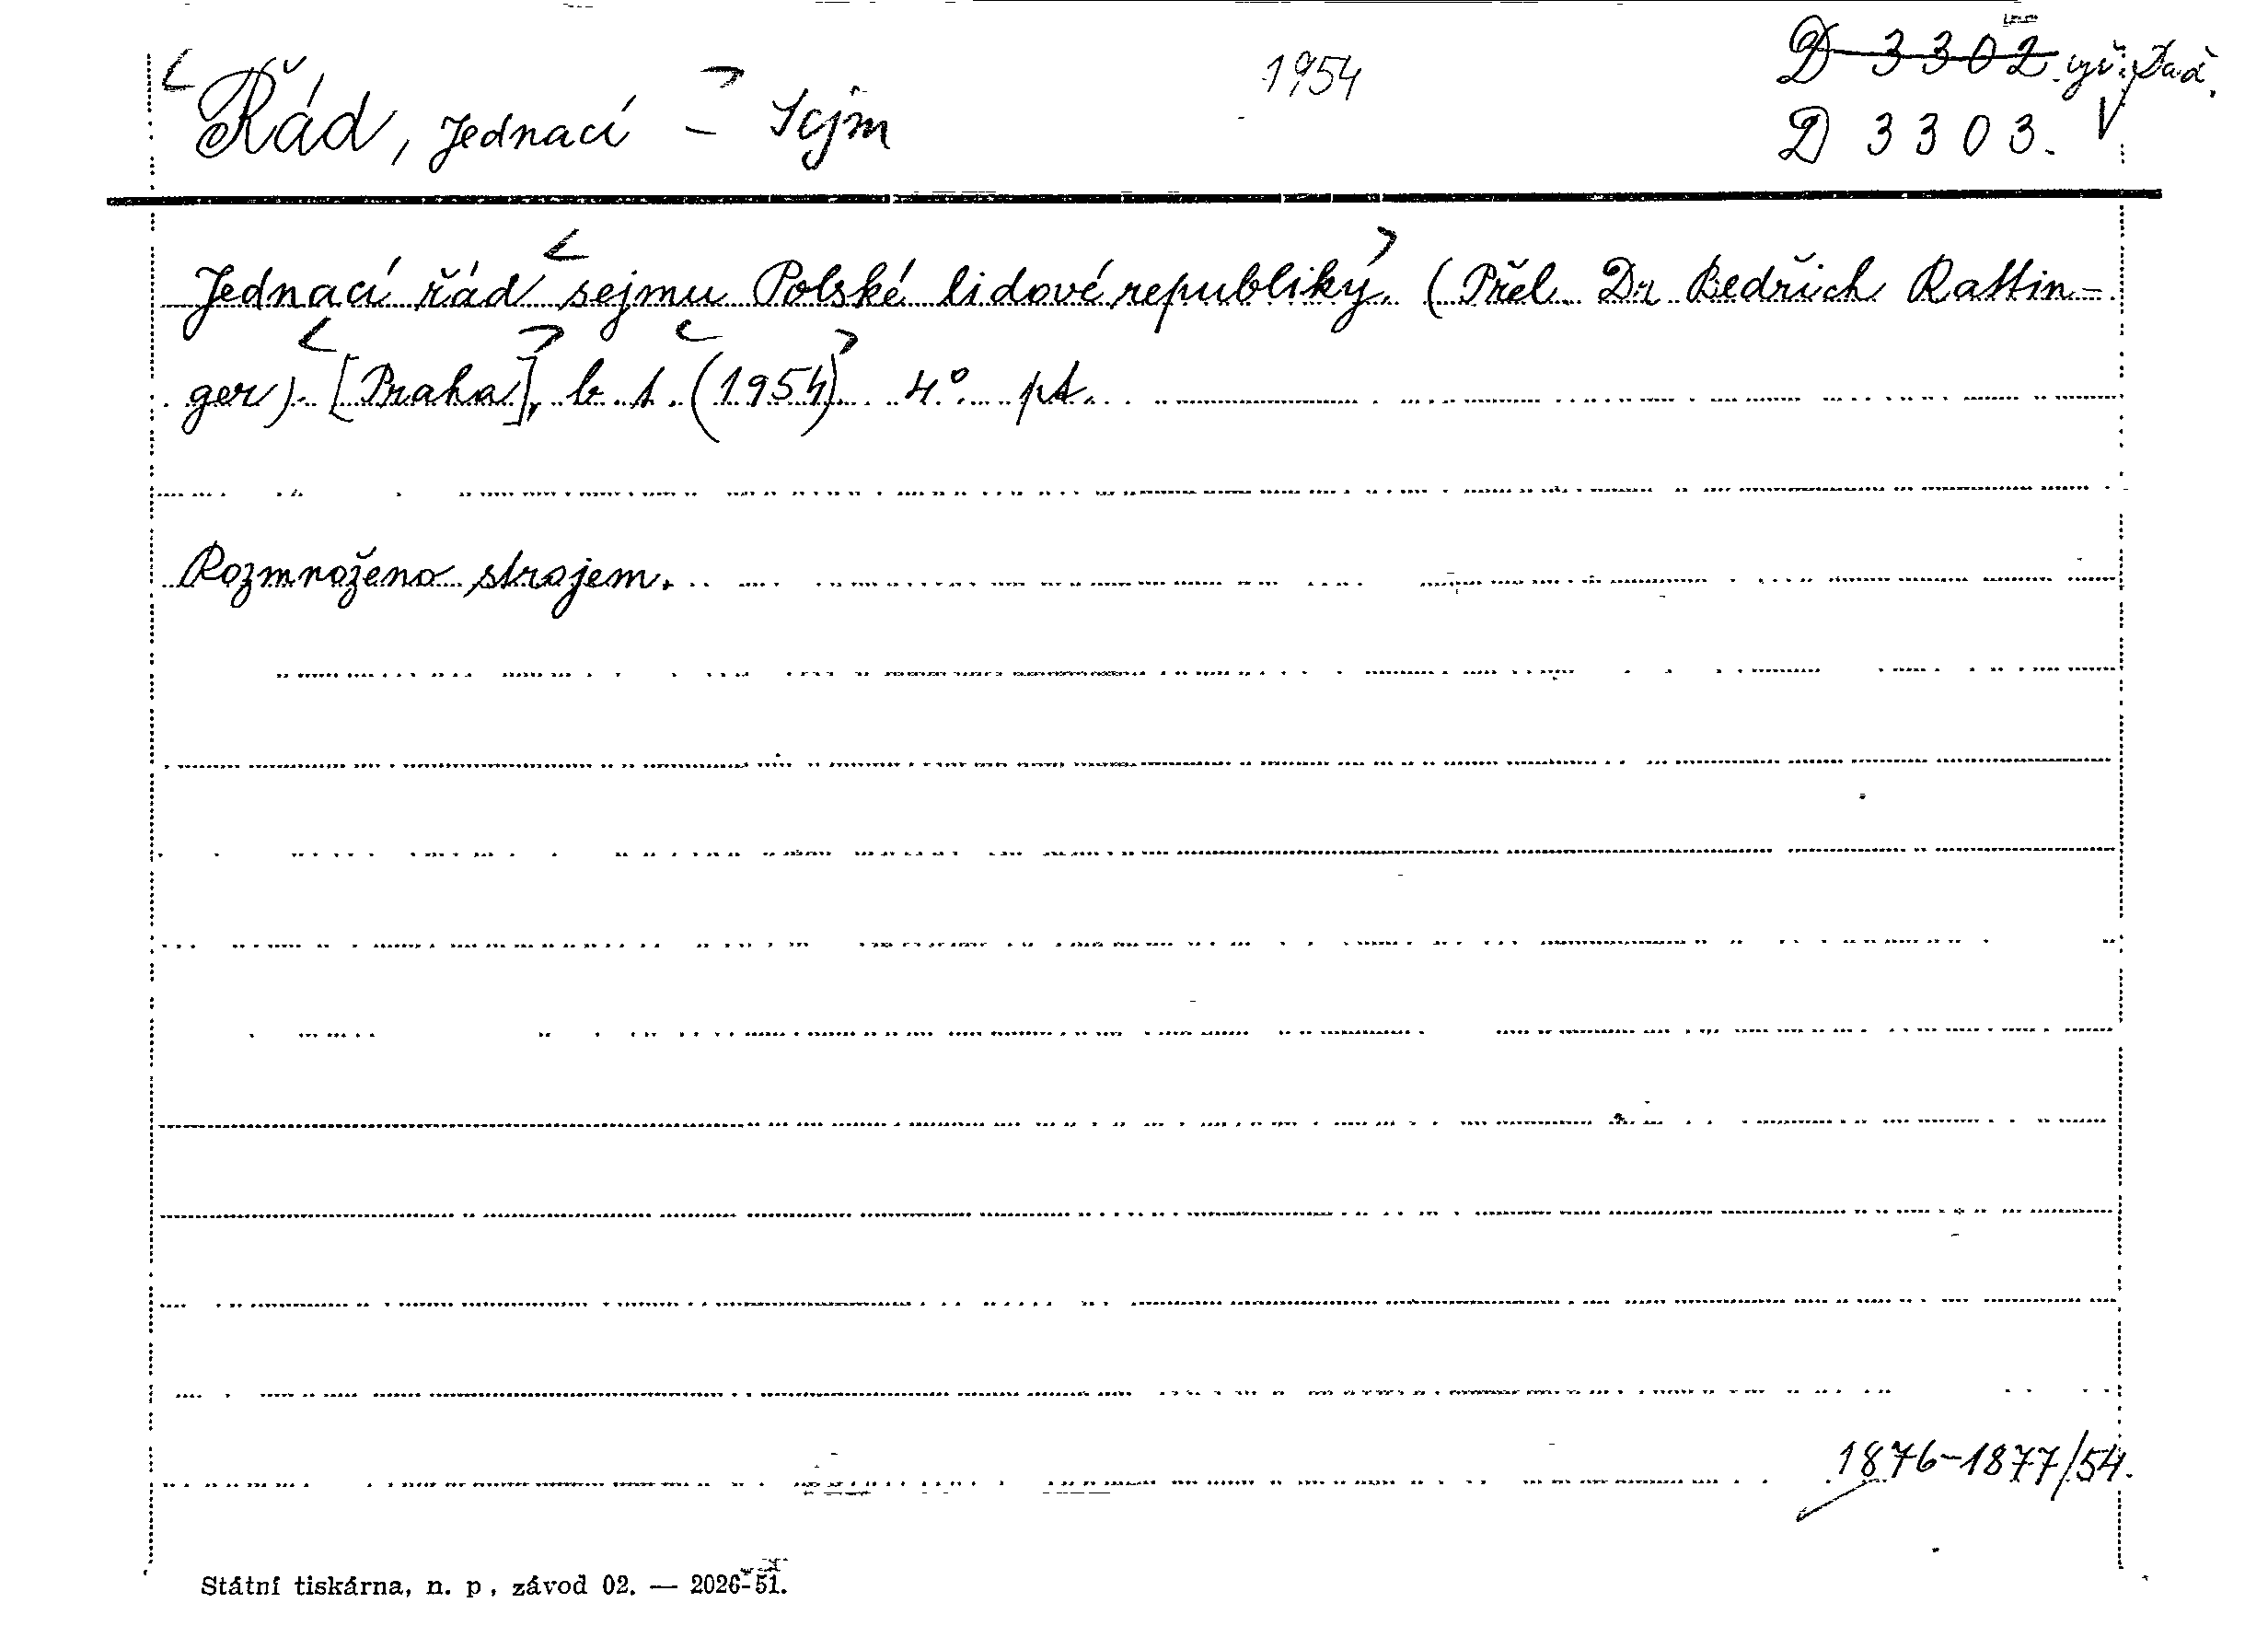 <Řád, jednací> - Sejm 1954 D 3302 vyř.
D 3303. V
Jednací řád <sejmu Polské lidové republiky>. (Přel. Dr Bedřich Rattin-
ger). <[Praha]>, b. t. <(1954)>. 4°. pt.
Rozmnoženo strojem.
1876-1877/54.
Státní tiskárna, n. p., závod 02. — 2026-51.